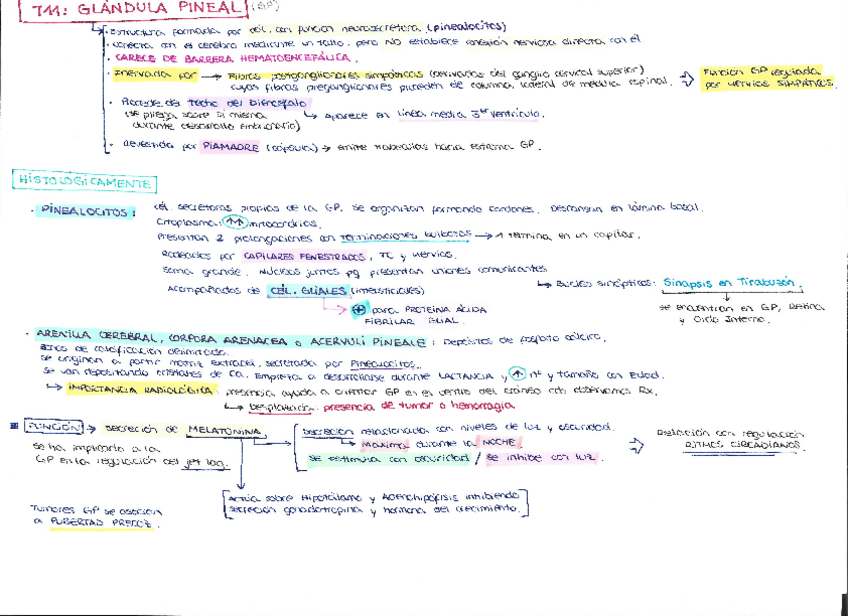 T11: GLÁNDULA PINEAL (GP)
Estructura formada por cél. con función neurosecretora (pinealocitos)
Conecta con el cerebro mediante un tallo, pero NO establece conexión nerviosa directa con él
· CARECE DE BARRERA HEMATOENCEFÁLICA.
· Inervada por → Fibras postganglionares simpáticas (derivadas del ganglio cervical superior)
cuyas fibras preganglionares proceden de columna lateral de médula espinal.
⇒ Función GP regulada
por nervios SIMPÁTICOS.
· Procede del techo del Diencéfalo
(se pliega sobre sí misma
durante desarrollo embrionario)
↳ aparece en línea media 3er ventrículo.
· Revestida por PIAMADRE (cápsula) → emite trabéculas hacia GP.
HISTOLÓGICAMENTE
· PINEALOCITOS: cél. secretoras propias de la GP. Se organizan formando cordones. Descansan en lámina basal.
Citoplasma: ↑↑ mitocondrias.
Presentan 2 prolongaciones con terminaciones bulbosas → 1 termina en un capilar.
Rodeados por CAPILARES FENESTRADOS, TC y nervios.
Soma grande. Núcleos juntos pq presentan uniones comunicantes
Acompañados de CÉL. GLIALES (intersticiales)
→ ⊕ para PROTEÍNA ÁCIDA
FIBRILAR GLIAL.
↳ Bucles sinápticos: Sinapsis en Tirabuzón.
se encuentran en GP, Retina
y Oído Interno.
· ARENILLA CEREBRAL, CORPORA ARENACEA o ACERVULI PINEALE: Depósitos de fosfato cálcico.
de calcificación delimitada.
Se originan a partir matriz extracel. secretada por Pinealocitos.
Se van depositando cristales de Ca. Empieza a desarrollarse durante LACTANCIA y ↑ nº y tamaño con Edad.
↳ IMPORTANCIA RADIOLÓGICA: presencia ayuda a GP en el centro del cráneo cdo observamos Rx.
↳ Desplazada: presencia de tumor o hemorragia.
FUNCIÓN → secreción de MELATONINA
Se ha implicado a la
GP en la regulación del jet lag.
Secreción relacionada con niveles de luz y oscuridad.
Máxima durante la NOCHE.
Se estimula con oscuridad / se inhibe con luz.
⇒ Relación con regulación
RITMOS CIRCADIANOS.
Actúa sobre Hipotálamo y Adenohipófisis inhibiendo
secreción gonadotropina y hormona del crecimiento.
Tumores GP se asocian
a PUBERTAD PRECOZ.